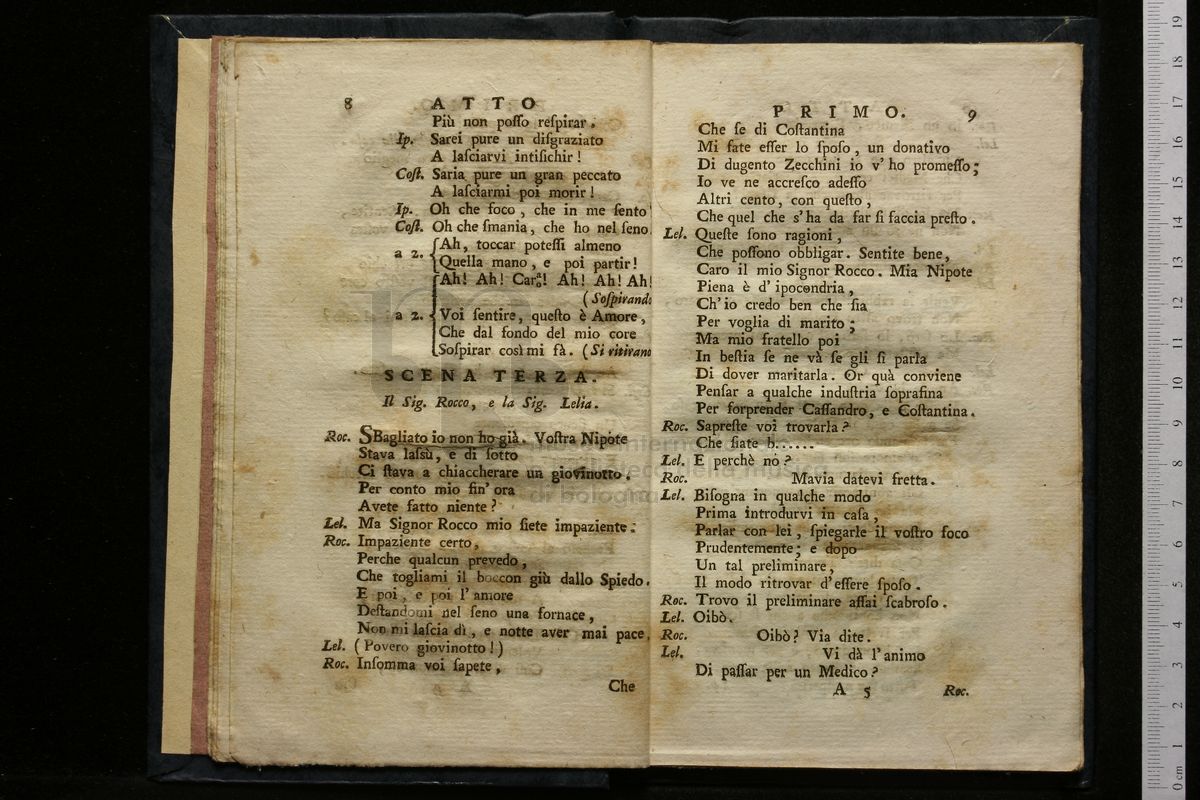 8 ATTO
Più non posso respirar.
Ip. Sarei pure un disgraziato
A lasciarvi intisichir!
Cost. Saria pure un gran peccato
A lasciarmi poi morir!
Ip. Oh che foco, che in me sento
Cost. Oh che smania, che ho nel seno.
a 2. Ah, toccar potessi almeno
Quella mano, e poi partir!
Ah! Ah! Car! Ah! Ah! Ah!
(Sospirando
a 2. Voi sentire, questo è Amore,
Che dal fondo del mio core
Sospirar così mi fà. (Si ritirano
SCENA TERZA.
Il Sig. Rocco, e la Sig. Lelia.
Roc. SBagliato io non ho già. Vostra Nipote
Stava lassù, e di sotto
Ci stava a chiaccherare un giovinotto.
Per conto mio fin' ora
Avete fatto niente?
Lel. Ma Signor Rocco mio siete impaziente.
Roc. Impaziente certo,
Perche qualcun prevedo,
Che togliami il boccon giù dallo Spiedo.
E poi, e poi l'amore
Destandomi nel seno una fornace,
Non mi lascia dì, e notte aver mai pace.
Lel. (Povero giovinotto!)
Roc. Insomma voi sapete,
Che
PRIMO. 9
Che se di Costantina
Mi fate esser lo sposo, un donativo
Di dugento Zecchini io v'ho promesso;
Io ve ne accresco adesso
Altri cento, con questo,
Che quel che s'ha da far si faccia presto.
Lel. Queste sono ragioni,
Che possono obbligar. Sentite bene,
Caro il mio Signor Rocco. Mia Nipote
Piena è d'ipocondria,
Ch'io credo ben che sia
Per voglia di marito;
Ma mio fratello poi
In bestia se ne và se gli si parla
Di dover maritarla. Or quà conviene
Pensar a qualche industria soprafina
Per forprender Cassandro, e Costantina.
Roc. Sapreste voi trovarla?
Che siate b......
Lel. E perchè nò?
Roc. Mavia datevi fretta.
Lel. Bisogna in qualche modo
Prima introdurvi in casa,
Parlar con lei, spiegarle il vostro foco
Prudentemente; e dopo
Un tal preliminare,
Il modo ritrovar d'essere sposo.
Roc. Trovo il preliminare assai scabroso.
Lel. Oibò.
Roc. Oibò? Via dite.
Lel. Vi dà l'animo
Di passar per un Medico?
A 5 Roc.